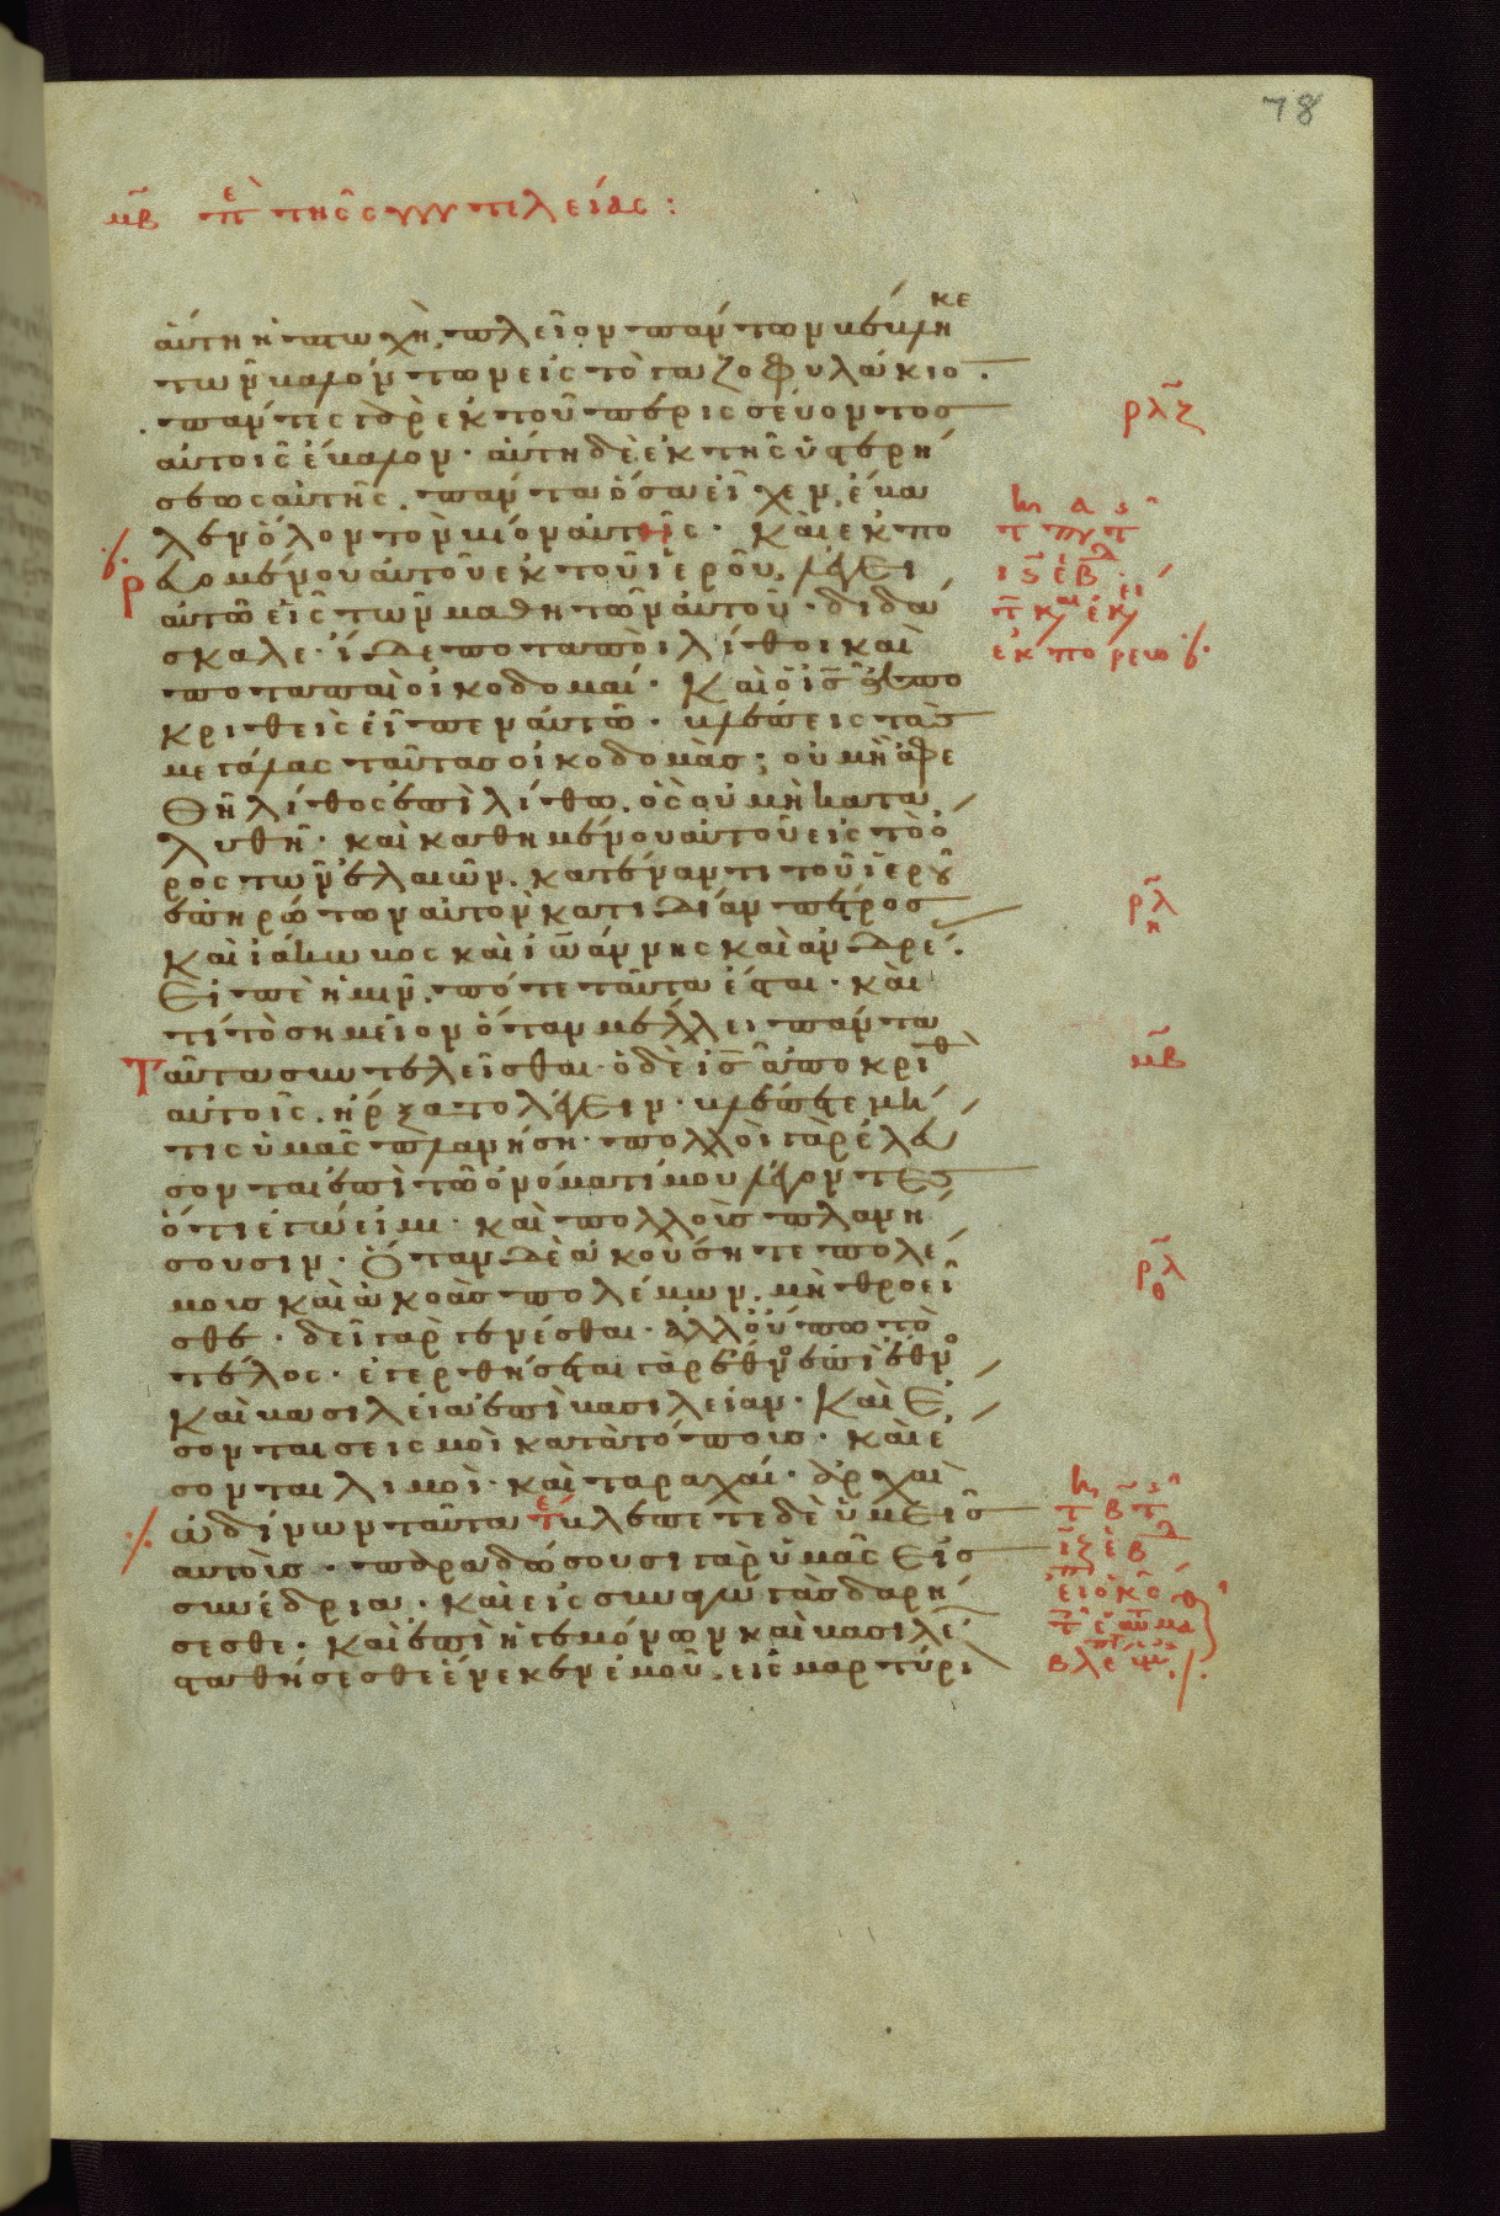 78
μβ περὶ τῆς συντελείας :
αὕτη ἡ πτωχὴ, πλεῖον πάντων βέβληκε
τῶν βαλόντων εἰς τὸ γαζοφυλάκιο.
πάντες γὰρ ἐκ τοῦ περισσεύοντος ρλζ
αὐτοῖς ἔβαλον· αὕτη δὲ ἐκ τῆς ὑστερή
σεως αὐτῆς. πάντα ὅσα εἶχεν, ἔβα
λεν ὅλον τὸν βίον αὐτῆς· Καὶ ἐκπο
ρευομένου αὐτοῦ ἐκ τοῦ ἱεροῦ, λέγει
αὐτῷ εἷς τῶν μαθητῶν αὐτοῦ· διδά
σκαλε· ἴδε ποταποὶ λίθοι καὶ
ἐκπορευο
ποταπαὶ οἰκοδομαί· Καὶ ὁ ις ἀπο
κριθεὶς εἶπεν αὐτῷ· βλέπεις τὰς
μεγάλας ταύτας οἰκοδομάς; οὐ μὴ ἀφε
θῇ λίθος ἐπὶ λίθω. ὃς οὐ μὴ κατα
λυθῇ· καὶ καθημένου αὐτοῦ εἰς τὸ ὄ
ρος τῶν ἐλαιῶν. κατέναντι τοῦ ἱεροῦ
ἐπηρώτων αὐτὸν κατιδίαν πέτρος ρλη
Καὶ ἰάκωβος καὶ ἰωάννης καὶ ἀνδρέ.
Εἰπὲ ἡμῖν. πότε ταῦτα ἔσται· καὶ
τί τὸ σημεῖον ὅταν μέλλει πάντα
Ταῦτα συντελεῖσθαι· ὁ δὲ ις ἀποκριθ μβ
αὐτοῖς. ἤρξατο λέγειν· βλέπετε μή
τις ὑμᾶς πλανήση· πολλοὶ γὰρ ἐλεύ
σονται ἐπὶ τῷ ὀνόματί μου λέγοντες
ὅτι ἐγώ εἰμι· καὶ πολλοὺς πλανή
σουσιν· Ὅταν δὲ ἀκούσητε πολέ
μους καὶ ἀκοὰς πολέμων. μὴ θροεῖ ρλθ
σθε· δεῖ γὰρ γενέσθαι· ἀλλ οὔπω τὸ
τέλος· ἐγερθήσεται γὰρ ἔθνος ἐπὶ ἔθνος
Καὶ βασιλεία ἐπὶ βασιλείαν· Καὶ ἔ
σονται σεισμοὶ κατὰ τόπους· καὶ ἔ
σονται λιμοὶ· καὶ ταραχαί· ἀρχαὶ
ὠδίνων ταῦτα τε βλέπετε δὲ ὑμεῖς
αὐτοὺς· παραδώσουσι γὰρ ὑμᾶς εἰς
συνέδρια· καὶ εἰς συναγωγὰς δαρή
σεσθε· καὶ ἐπὶ ἡγεμόνων καὶ βασιλέ
σταθήσεσθε ἕνεκεν ἐμοῦ. εἰς μαρτύρι